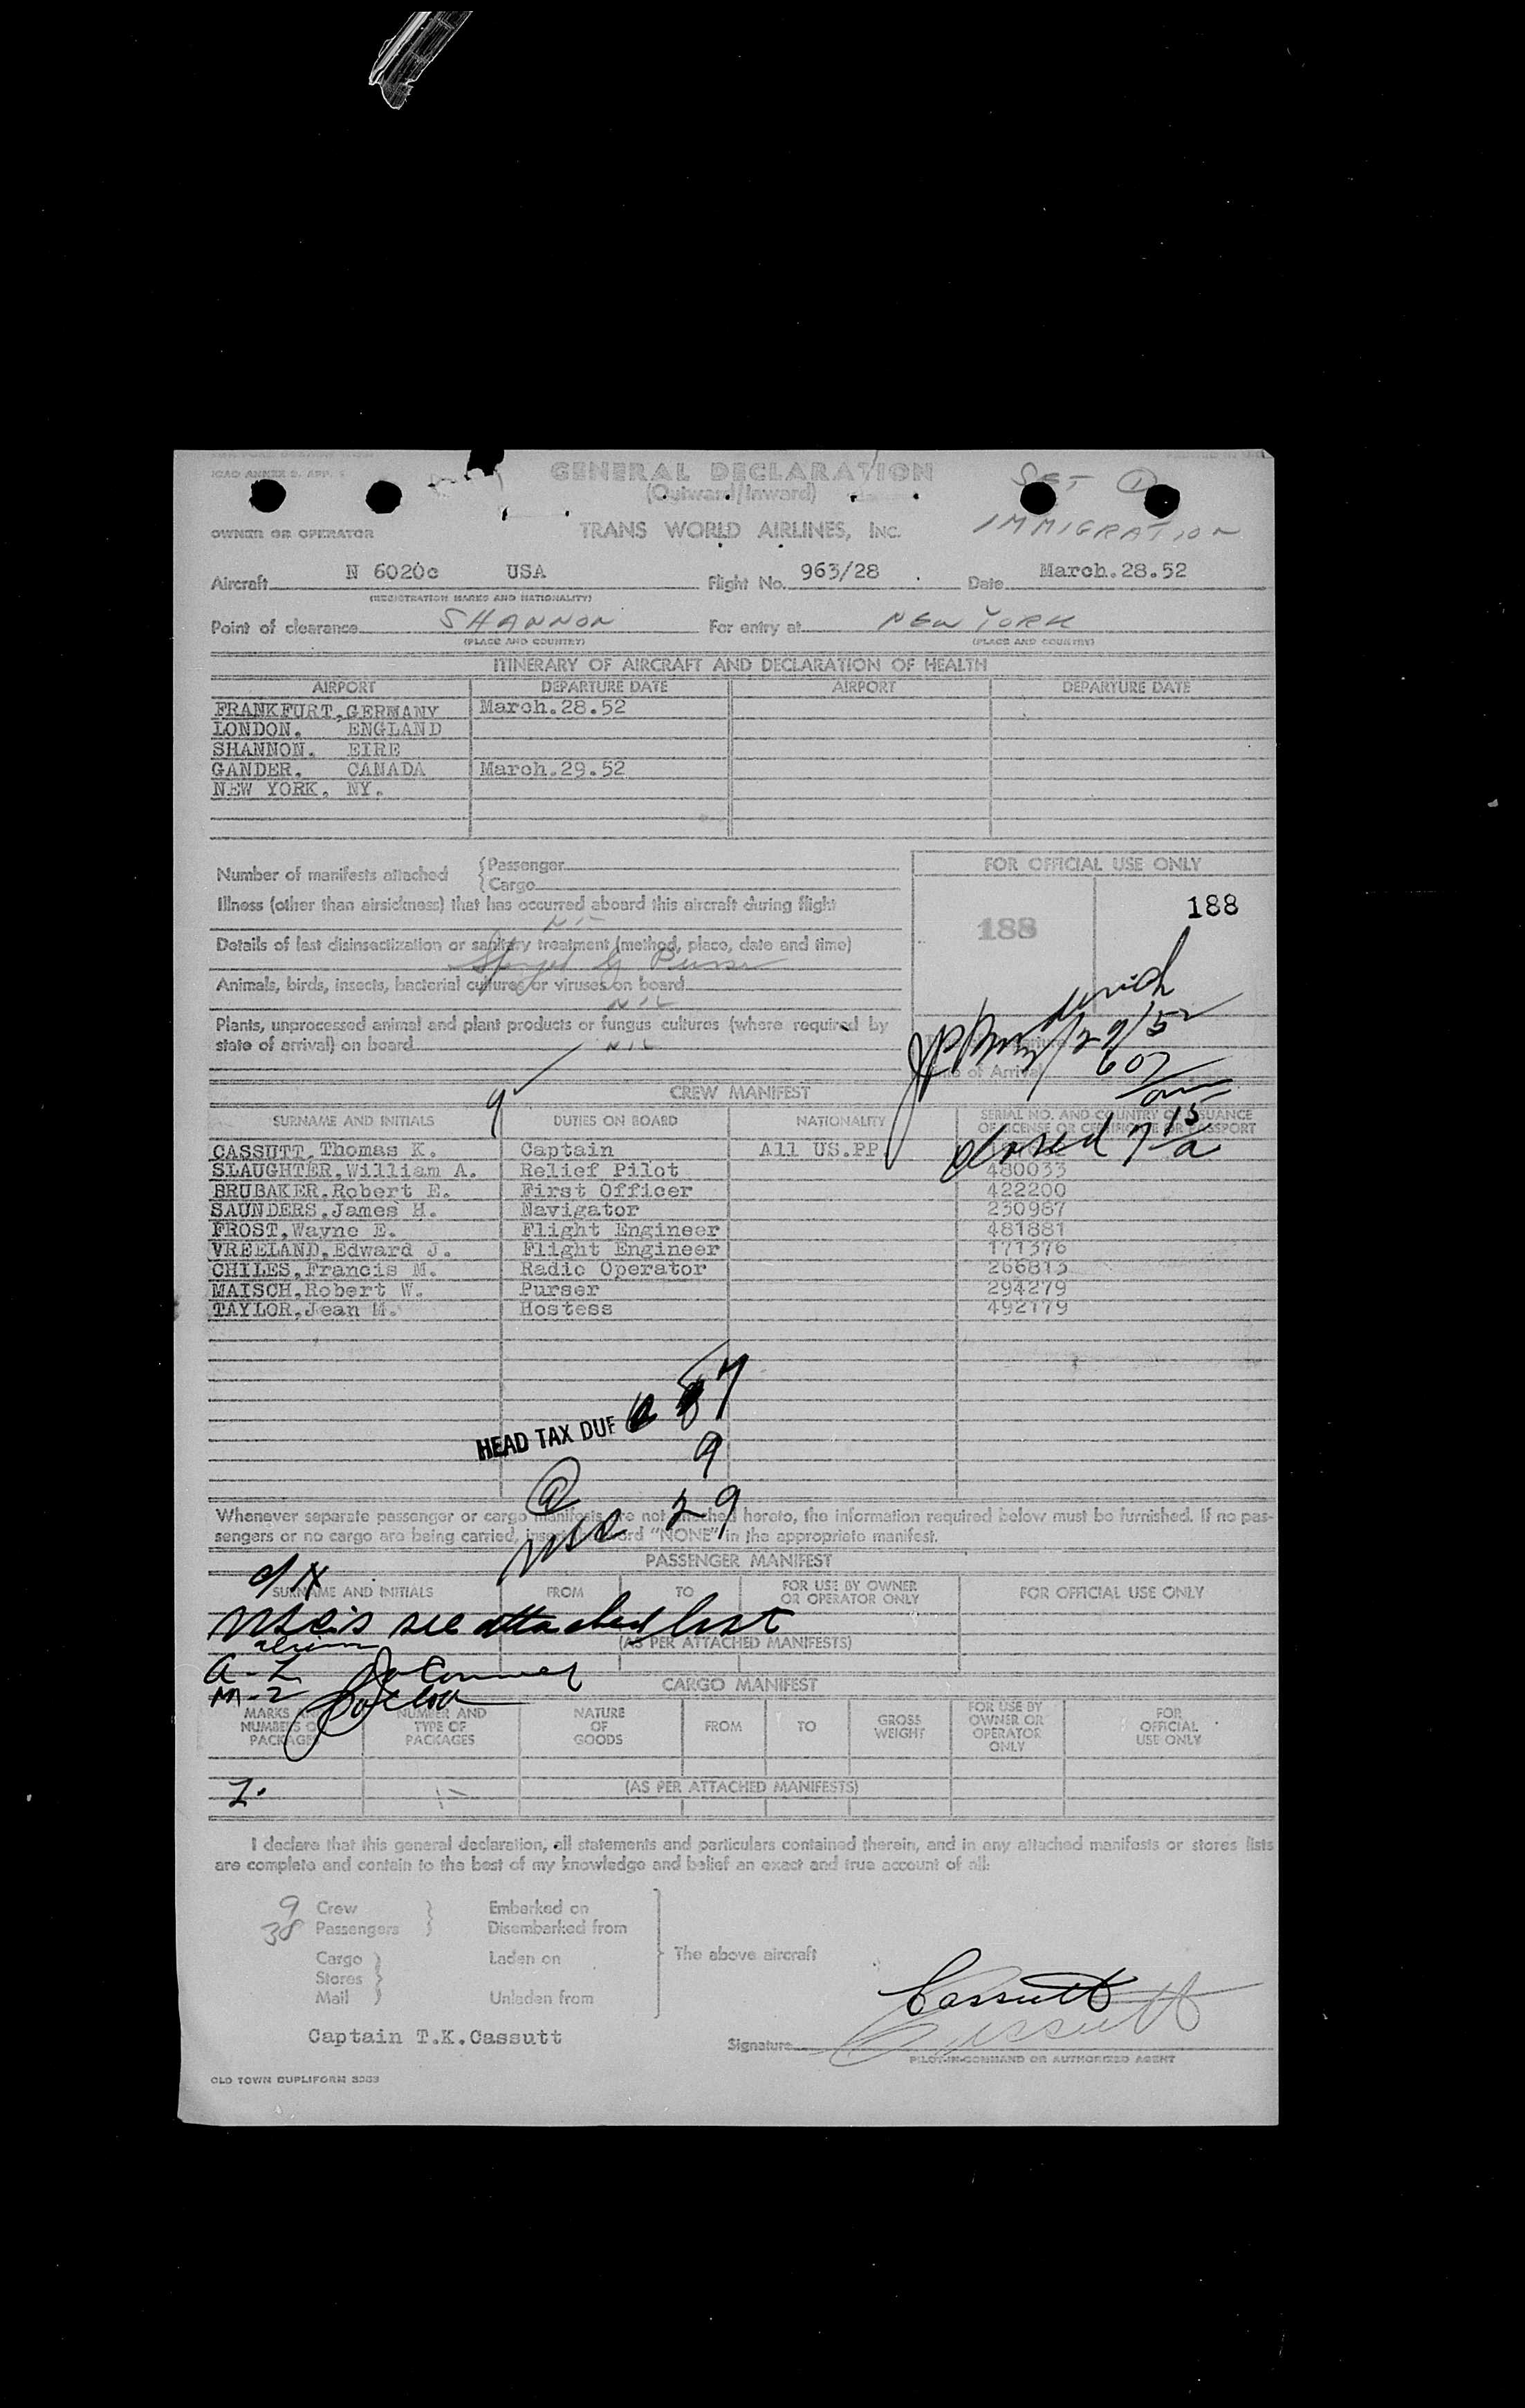 ICAO ANNEX 9, APP. 1
GENERAL DECLARATION
(Outward/Inward)
SET 1
IMMIGRATION
OWNER OR OPERATOR TRANS WORLD AIRLINES, INC.
Aircraft N 6020c USA Flight No. 963/28 Date March.28.52
(REGISTRATION MARKS AND NATIONALITY)
Point of clearance SHANNON For entry at NEW YORK
(PLACE AND COUNTRY) (PLACE AND COUNTRY)
ITINERARY OF AIRCRAFT AND DECLARATION OF HEALTH
AIRPORT DEPARTURE DATE AIRPORT DEPARTURE DATE
FRANKFURT,GERMANY March.28.52
LONDON, ENGLAND
SHANNON, EIRE
GANDER, CANADA March.29.52
NEW YORK, NY.
Number of manifests attached {Passenger
{Cargo
FOR OFFICIAL USE ONLY
188 188
Illness (other than airsickness) that has occurred aboard this aircraft during flight
NIL
Details of last disinsectization or sanitary treatment (method, place, date and time)
by Purser
Animals, birds, insects, bacterial cultures or viruses on board
NIL
Plants, unprocessed animal and plant products or fungus cultures (where required by
state of arrival) on board NIL
/29/52
of Arrival 607
am
9
CREW MANIFEST
SURNAME AND INITIALS DUTIES ON BOARD NATIONALITY SERIAL NO. AND COUNTRY OF ISSUANCE
OF LICENSE OR CERTIFICATE OR PASSPORT
closed 7 15 a
CASSUTT,Thomas K. Captain All US.PP.
SLAUGHTER,William A. Relief Pilot 480033
BRUBAKER,Robert E. First Officer 422200
SAUNDERS,James H. Navigator 230987
FROST,Wayne E. Flight Engineer 481881
VREELAND,Edward J. Flight Engineer 171376
CHILES,Francis M. Radio Operator 266813
MAISCH,Robert W. Purser 294279
TAYLOR,Jean M. Hostess 492179
HEAD TAX DUE
9
@
USC 29
Whenever separate passenger or cargo manifests are not attached hereto, the information required below must be furnished. If no pas-
sengers or no cargo are being carried, insert the word "NONE" in the appropriate manifest.
PASSENGER MANIFEST
SURNAME AND INITIALS FROM TO FOR USE BY OWNER
OR OPERATOR ONLY FOR OFFICIAL USE ONLY
USC's see attached list
(AS PER ATTACHED MANIFESTS)
M-2
CARGO MANIFEST
MARKS AND
NUMBERS OF
PACKAGES NUMBER AND
TYPE OF
PACKAGES NATURE
OF
GOODS FROM TO GROSS
WEIGHT FOR USE BY
OWNER OR
OPERATOR
ONLY FOR
OFFICIAL
USE ONLY
(AS PER ATTACHED MANIFESTS)
I declare that this general declaration, all statements and particulars contained therein, and in any attached manifests or stores lists
are complete and contain to the best of my knowledge and belief an exact and true account of all:
9 Crew } Embarked on
38 Passengers } Disembarked from
Cargo } Laden on The above aircraft
Stores }
Mail } Unladen from
Cassutt
Captain T.K.Cassutt Signature Cassutt
PILOT-IN-COMMAND OR AUTHORIZED AGENT
OLD TOWN DUPLIFORM